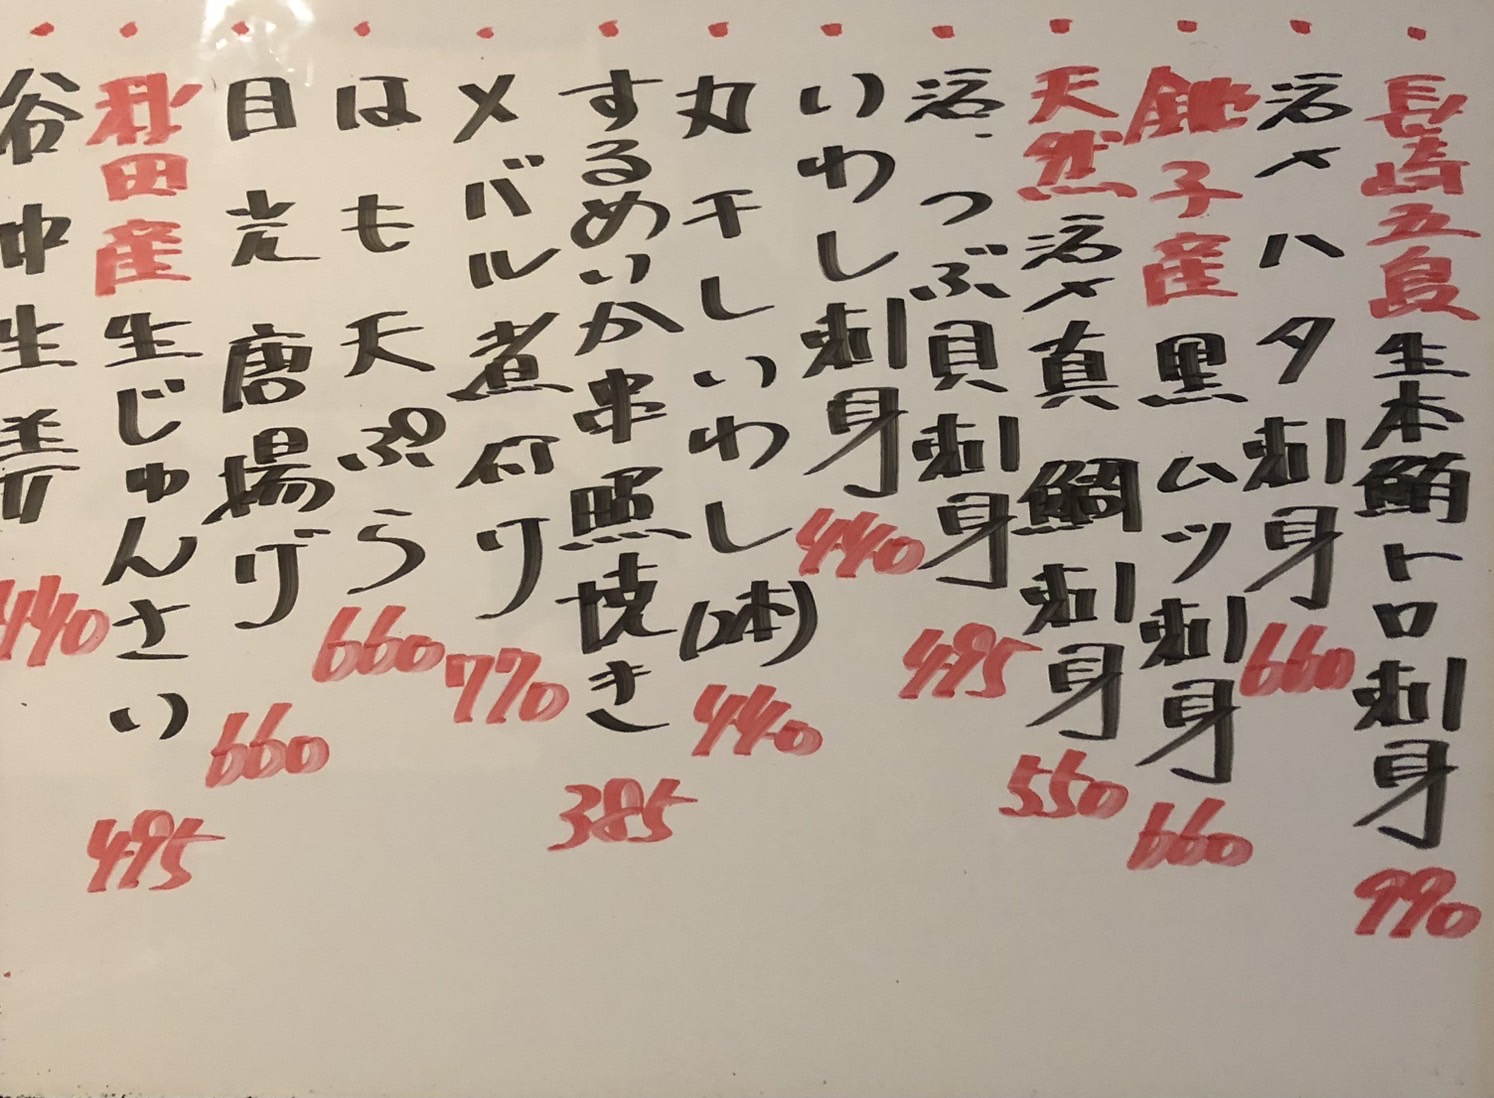 長崎五島生本鮪トロ刺身990
活〆ハタ刺身660
銚子産黒ムツ刺身660
天然活〆真鯛刺身550
活つぶ貝刺身495
いわし刺身440
丸干しいわし(2本)440
するめいか串照焼き385
メバル煮付け770
はも天ぷら660
目光唐揚げ660
秋田産生じゅんさい495
谷中生姜440